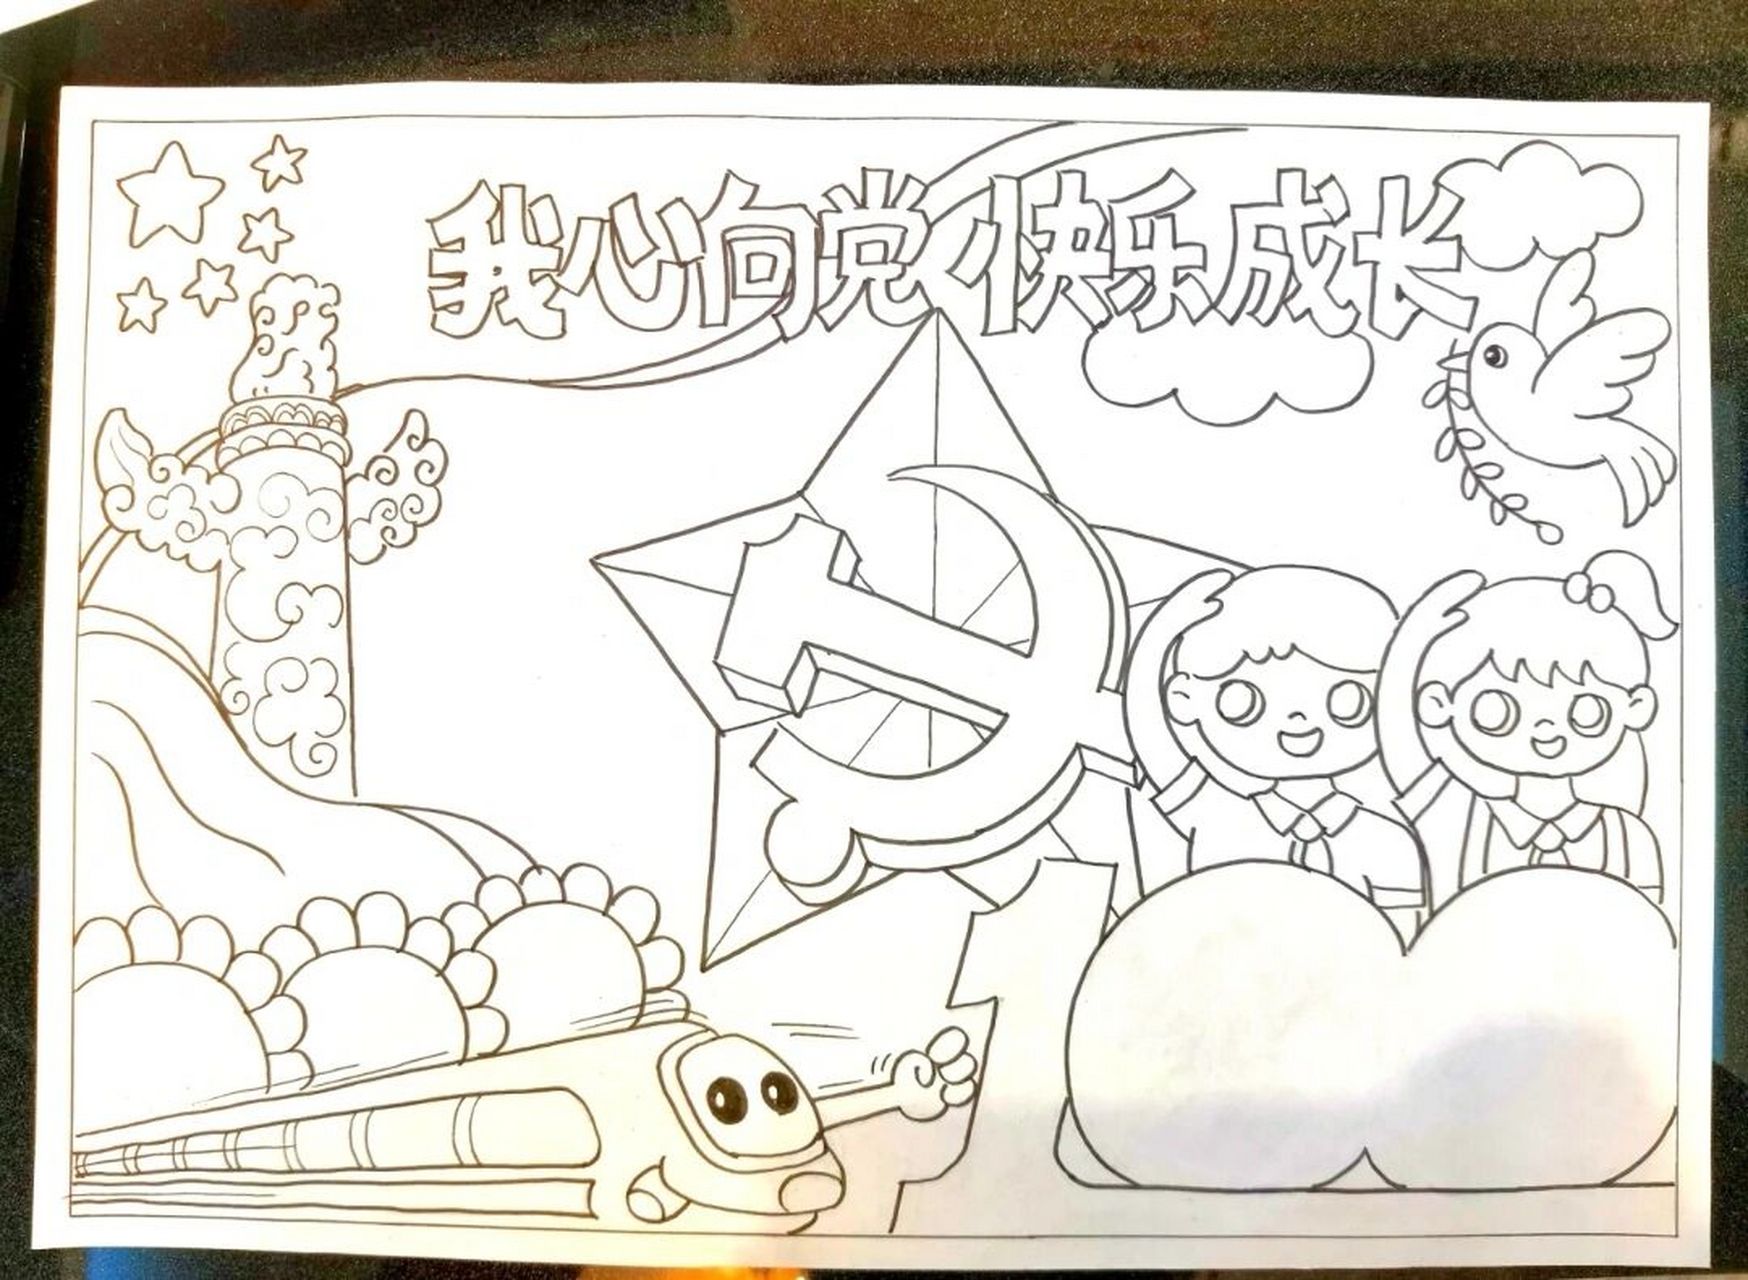 我心向党快乐成长